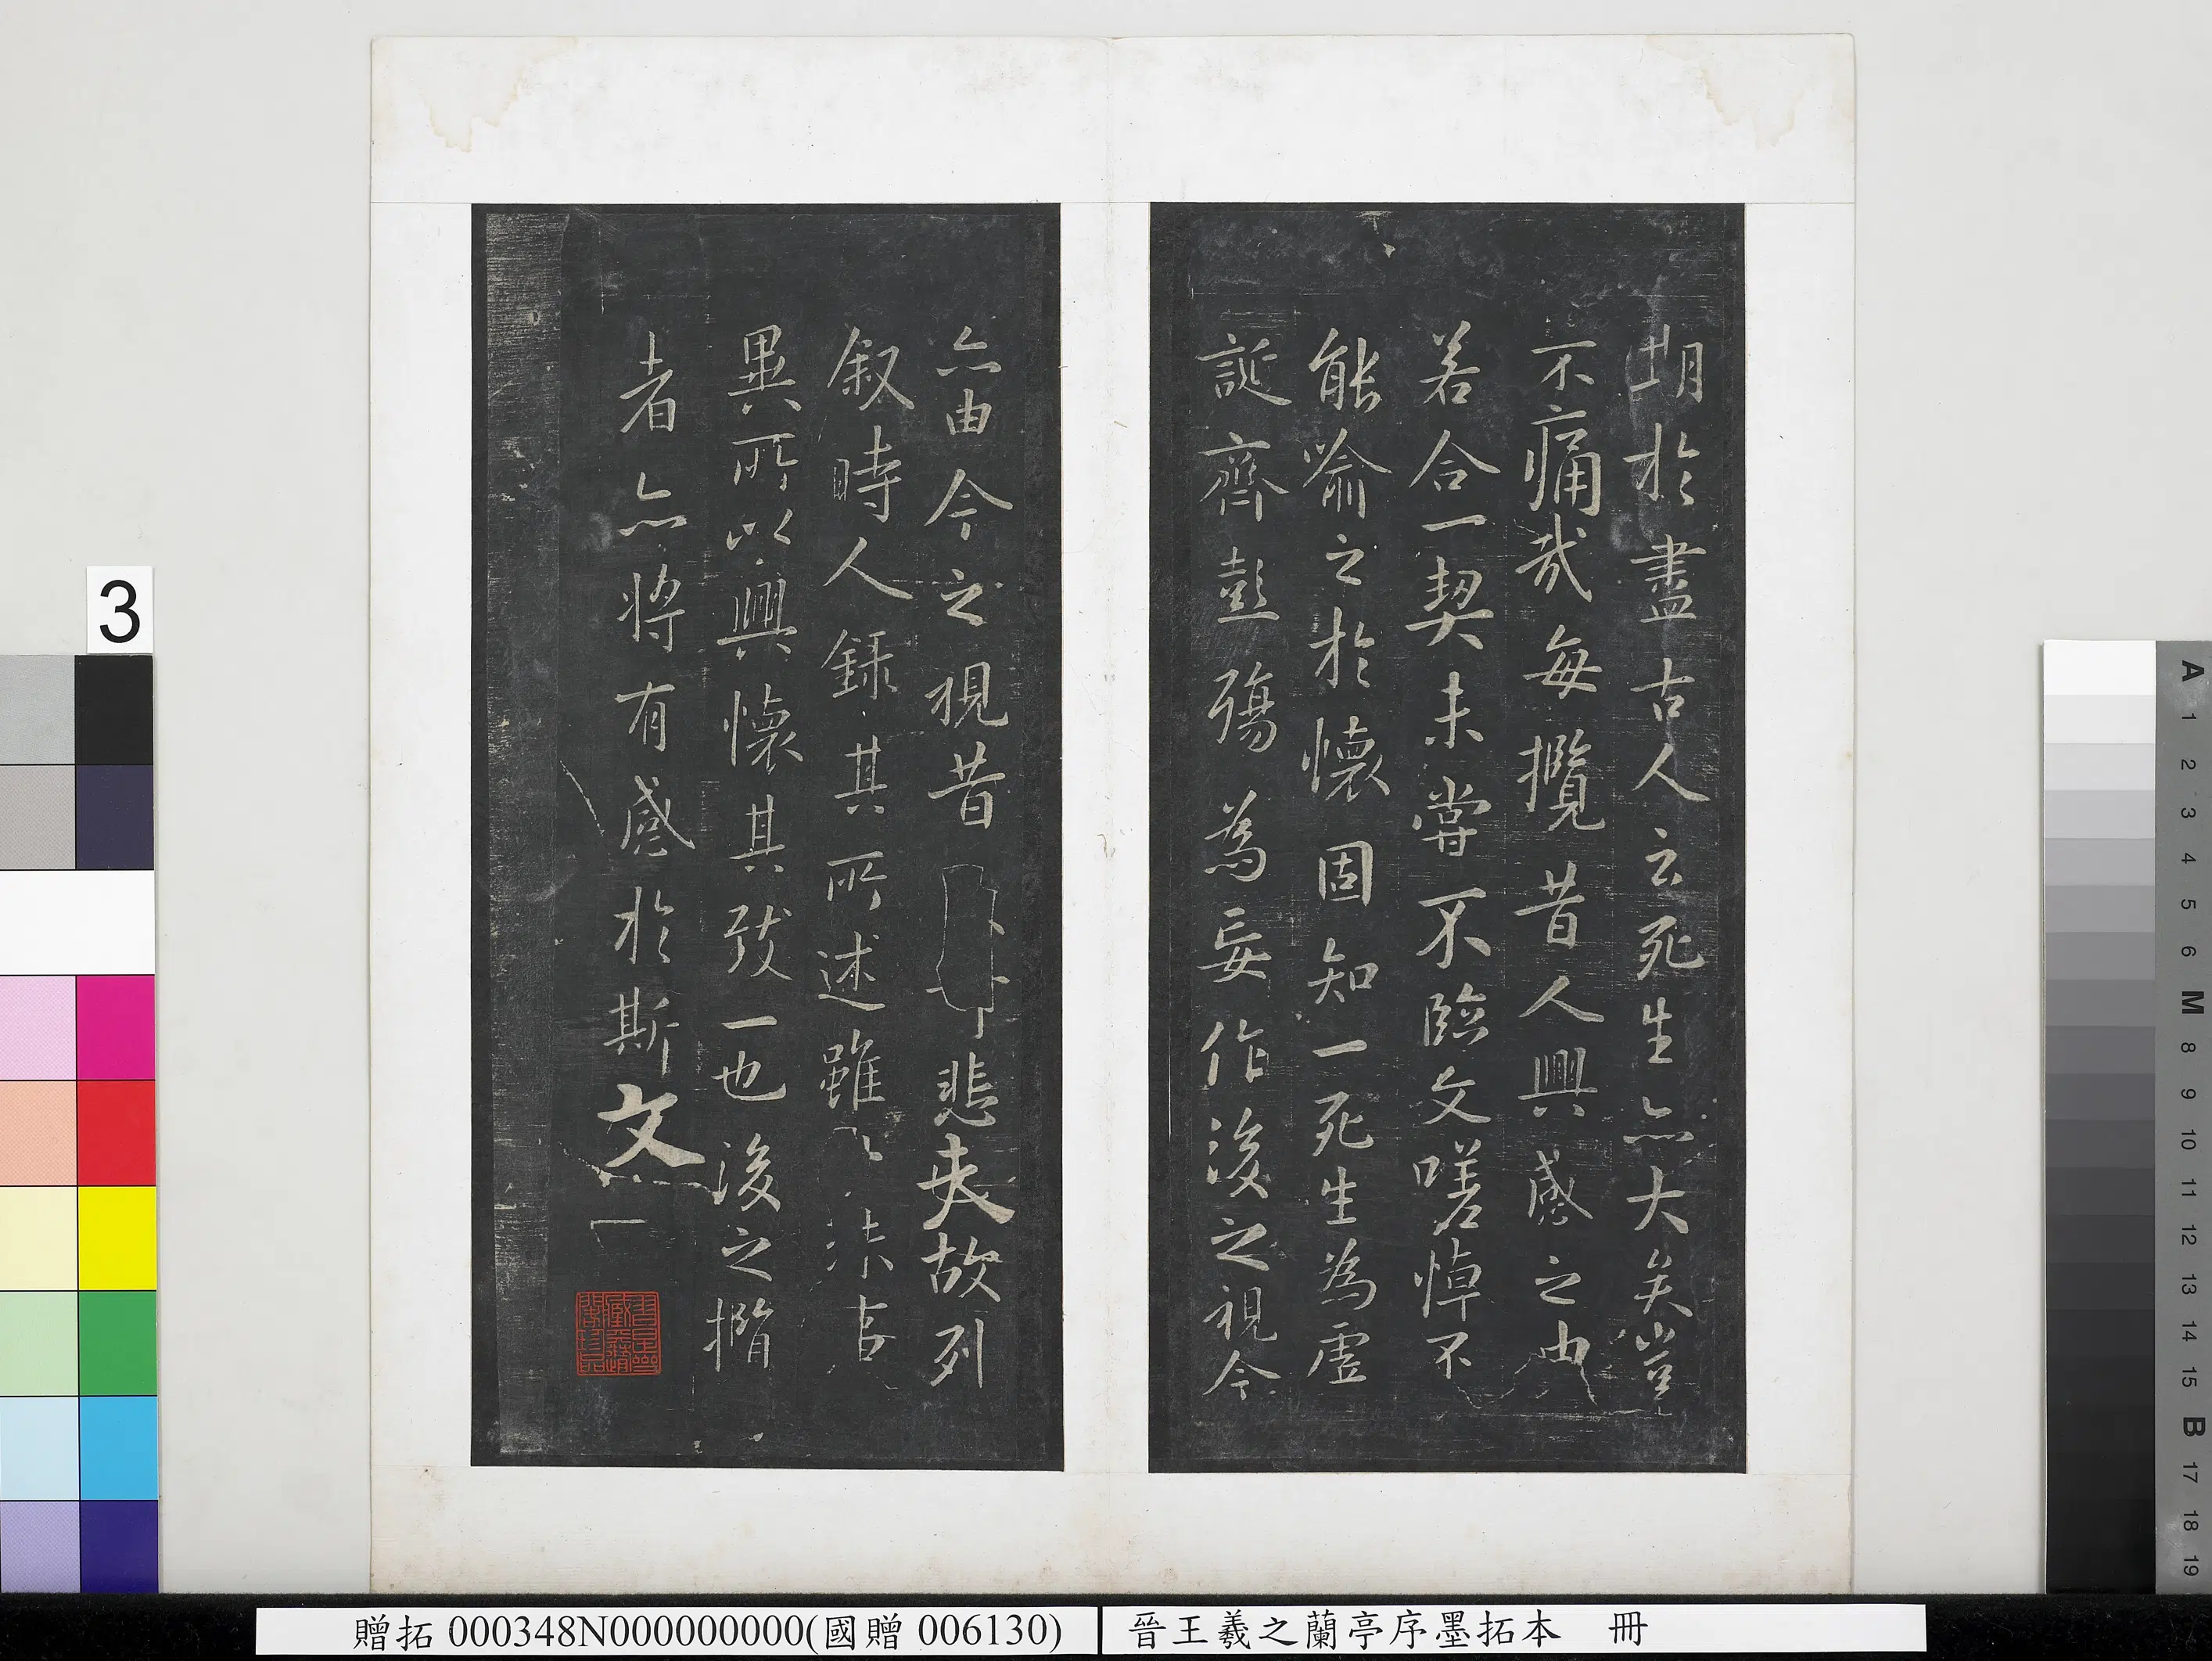 期於盡古人云死生亦大矣豈
不痛哉每攬昔人興感之由
若合一契未嘗不臨文嗟悼不
能喻之於懷固知一死生為虛
誕齊彭殤為妄作後之視今
亦由今之視昔悲夫故列
叙時人錄其所述雖
異所以興懷其致一也後之攬
者亦將有感於斯文
3
贈拓 000348N000000000(國贈 006130)
晉王羲之蘭亭序墨拓本 冊
A
1
2
3
4
5
6
M
8
9
10
11
12
13
14
15
B
17
18
19